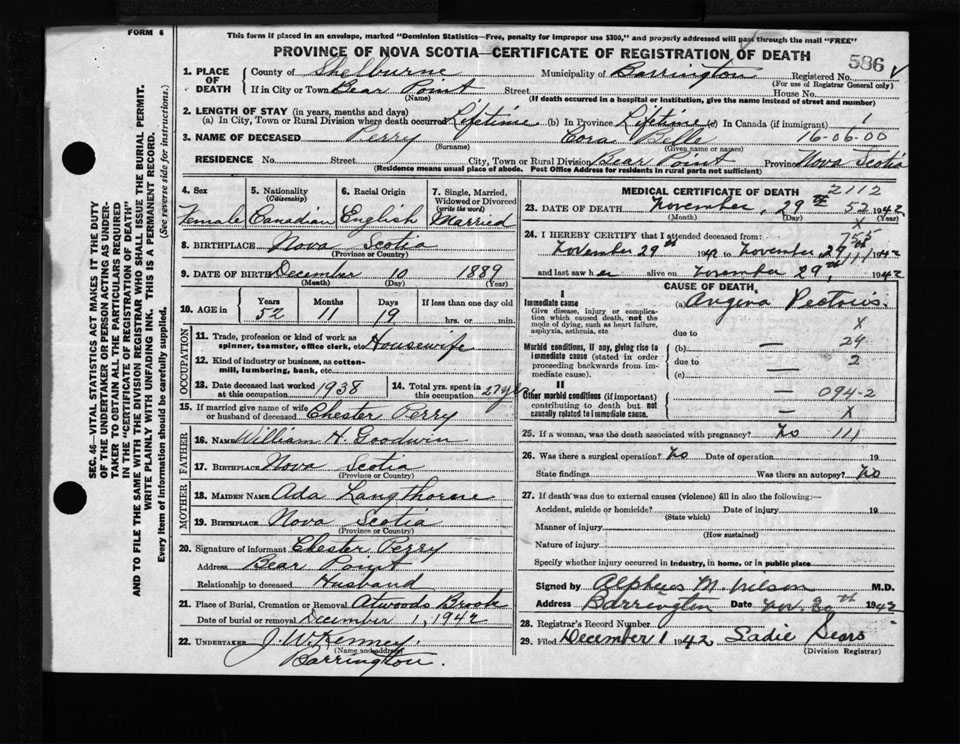 FORM 6
This form if placed in an envelope, marked "Dominion Statistics—Free, penalty for improper use $300," and properly addressed will pass through the mail "FREE"
PROVINCE OF NOVA SCOTIA—CERTIFICATE OF REGISTRATION OF DEATH
586
1. PLACE OF DEATH County of Shelburne Municipality of Barrington Registered No.
(For use of Registrar General only)
If in City or Town Bear Point Street House No.
(Name) (If death occurred in a hospital or institution, give the name instead of street and number)
2. LENGTH OF STAY (in years, months and days)
(a) In City, Town or Rural Division where death occurred Lifetime (b) In Province Lifetime (c) In Canada (if immigrant) 1
3. NAME OF DECEASED Perry Cora Belle 16-06-00
(Surname) (Given name or names)
RESIDENCE No. Street City, Town or Rural Division Bear Point Province Nova Scotia
(Residence means usual place of abode. Post Office Address for residents in rural parts not sufficient)
4. Sex 5. Nationality (Citizenship) 6. Racial Origin 7. Single, Married, Widowed or Divorced (write the word)
Female Canadian English Married
8. BIRTHPLACE Nova Scotia
(Province or Country)
9. DATE OF BIRTH December 10 1889
(Month) (Day) (Year)
10. AGE in Years Months Days If less than one day old
52 11 19 hrs. or min.
OCCUPATION
11. Trade, profession or kind of work as spinner, teamster, office clerk, etc. Housewife
12. Kind of industry or business, as cotton-mill, lumbering, bank, etc. —
13. Date deceased last worked at this occupation 1938 14. Total yrs. spent in this occupation 27 yrs
15. If married give name of wife or husband of deceased Chester Perry
FATHER
16. NAME William H. Goodwin
17. BIRTHPLACE Nova Scotia
(Province or Country)
MOTHER
18. MAIDEN NAME Ada Langthorne
19. BIRTHPLACE Nova Scotia
(Province or Country)
20. Signature of informant Chester Perry
Address Bear Point
Relationship to deceased Husband
21. Place of Burial, Cremation or Removal Atwoods Brook
Date of burial or removal December 1, 1942
22. UNDERTAKER J. W. Kenney
(Name and address)
Barrington.
MEDICAL CERTIFICATE OF DEATH
2112
23. DATE OF DEATH November, 29th 52 1942
(Month) (Day) (Year)
X
24. I HEREBY CERTIFY that I attended deceased from: 755
November 29th 1942 to November 29th 111 1942
and last saw her alive on November 29th 1942
CAUSE OF DEATH
I
Immediate cause (a) Angina Pectoris.
Give disease, injury or complication which caused death, not the mode of dying, such as heart failure, asphyxia, asthenia, etc
due to X
Morbid conditions, if any, giving rise to immediate cause (stated in order proceeding backwards from immediate cause).
(b) — 24
due to 2
(c) —
II
Other morbid conditions (if important) contributing to death but not causally related to immediate cause.
— 094-2
— X
25. If a woman, was the death associated with pregnancy? No 111
26. Was there a surgical operation? No Date of operation 19
State findings Was there an autopsy? No
27. If death was due to external causes (violence) fill in also the following:—
Accident, suicide or homicide? Date of injury 19
(State which)
Manner of injury
(How sustained)
Nature of injury
Specify whether injury occurred in Industry, in home, or in public place
Signed by Alpheus M. Wilson M.D.
Address Barrington Date Nov. 30th 1942
28. Registrar's Record Number
29. Filed December 1 1942 Sadie Sears
(Division Registrar)
SEC. 46—VITAL STATISTICS ACT MAKES IT THE DUTY
OF THE UNDERTAKER OR PERSON ACTING AS UNDER-
TAKER TO OBTAIN ALL THE PARTICULARS REQUIRED
IN THE "CERTIFICATE OF REGISTRATION OF DEATH"
AND TO FILE THE SAME WITH THE DIVISION REGISTRAR WHO SHALL ISSUE THE BURIAL PERMIT.
WRITE PLAINLY WITH UNFADING INK. THIS IS A PERMANENT RECORD.
Every item of information should be carefully supplied. (See reverse side for instructions.)